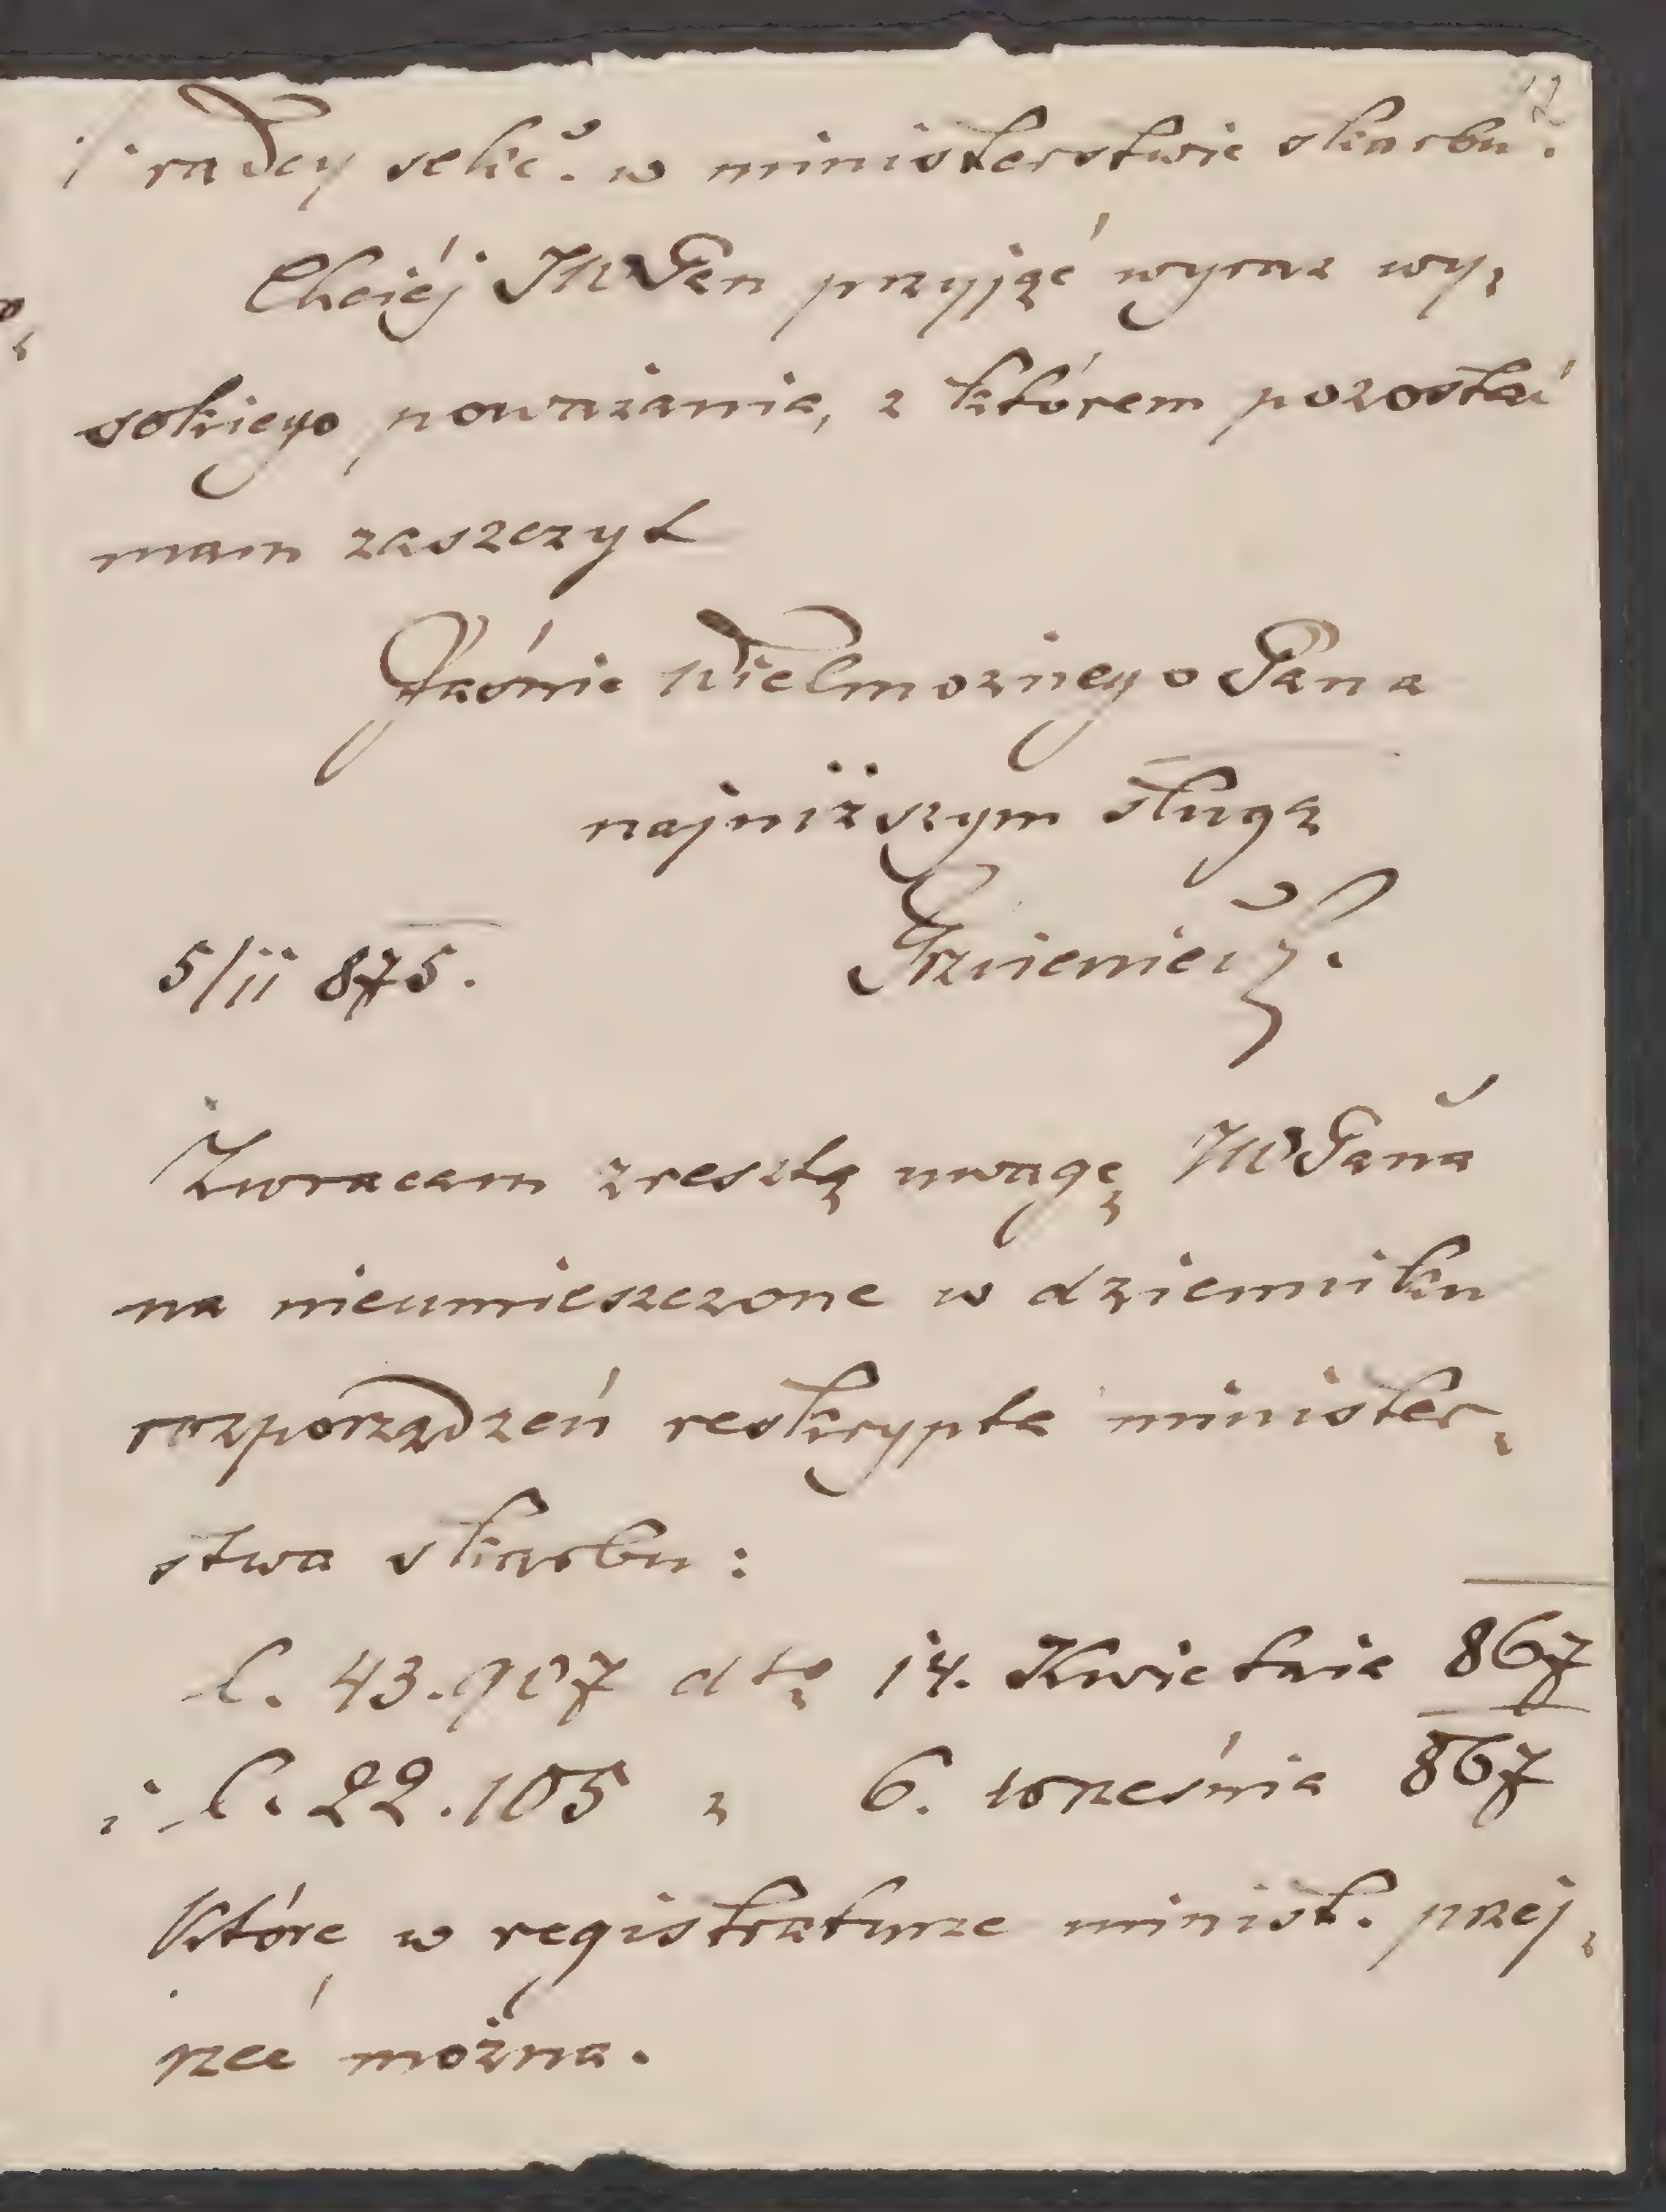 12
i radcy sekc. w ministerstwie skarbu.
Chciéj JWPan przyjąć wyraz wy-
sokiego poważania, z którem pozostać
mam zaszczyt
Jaśnie Wielmożnego Pana
najniższym sługą
5/ii 875.
Zwracam zresztą uwagę JWPana
na nieumieszczone w dzienniku
rozporządzeń reskrypta minister-
stwa skarbu:
l. 43.907 dto 14. Kwietnia 867
i l. 22.105 " 6. września 867
które w registraturze minist. przej-
rzeć można.